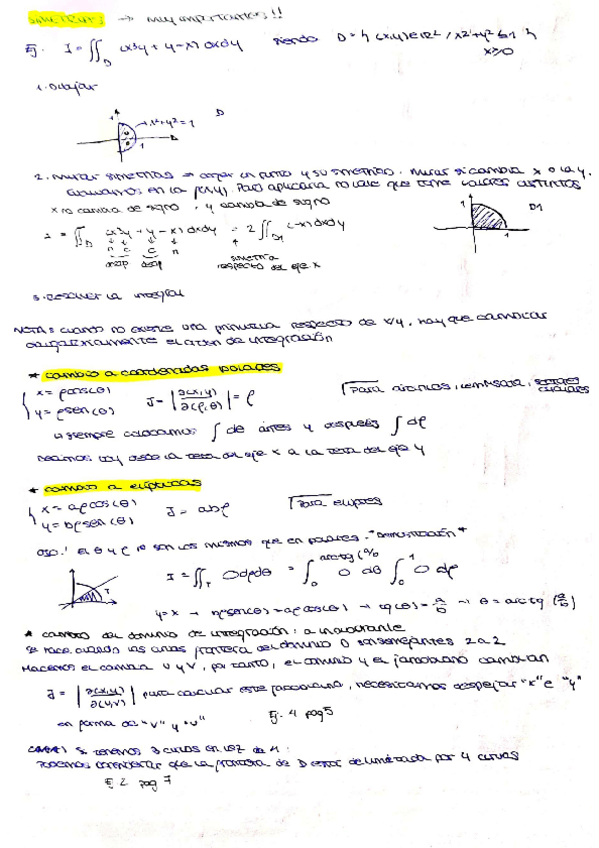 simetrías → muy importantes!!
Ej. I = ∬_D (x³y + y - x) dxdy siendo D = { (x,y) ∈ ℝ² / x²+y² ≤ 1 }
x≥0
1. Dibujar
x²+y²=1
D
1
2. Mirar simetrías ⇒ coger un punto y su simétrico. Mirar si cambia x o la y.
Evaluamos en la f(x,y). Para aplicarla no vale que tome valores distintos
x no cambia de signo, y cambia de signo
I = ∬_D (x³y + y - x) dxdy = 2 ∬_D1 (-x) dxdy
desp desp
simetría
respecto del eje x
1 D1
1
3. Resolver la integral
NOTA: cuando no existe una primitiva respecto de x/y, hay que cambiar
obligatoriamente el orden de integración
* cambio a coordenadas polares
x = ρcos(θ)
y = ρsen(θ)
J = |∂(x,y)/∂(ρ,θ)| = ρ
Para círculos, sectores circulares
↳ siempre colocamos ∫ de antes y después ∫ dρ
* cambio a elípticas
x = aρcos(θ)
y = bρsen(θ)
J = abρ
Para elipses
ojo! El θ y ρ no son los mismos que en polares.
T
I = ∬_T 0 dρdθ = ∫₀^arctg(a/b) 0 dθ ∫₀^1 0 dρ
y=x → bρsen(θ) = aρcos(θ) → tg(θ) = a/b → θ = arctg (a/b)
* cambio del dominio de integración: a
Se hace cuando las curvas frontera del dominio D son semejantes 2 a 2
Hacemos el cambio u y v, por tanto, el dominio y el jacobiano cambian
J = |∂(x,y)/∂(u,v)| para calcular este jacobiano, necesitamos despejar "x" e "y"
en forma de "u" y "v"
Ej. 4 pag 5
si tenemos 3 curvas en vez de 4:
Podemos considerar que la frontera de D está delimitada por 4 curvas
Ej 2 pag 7